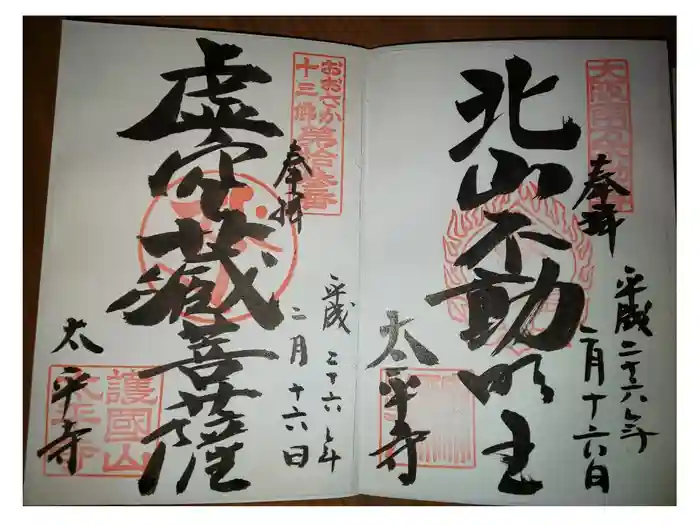 奉拝
北山不動明王
平成二十六年
二月十六日
太平寺
おおさか
十三佛
第拾三番
奉拝
虚空蔵菩薩
平成二十六年
二月十六日
太平寺
護國山
太平寺